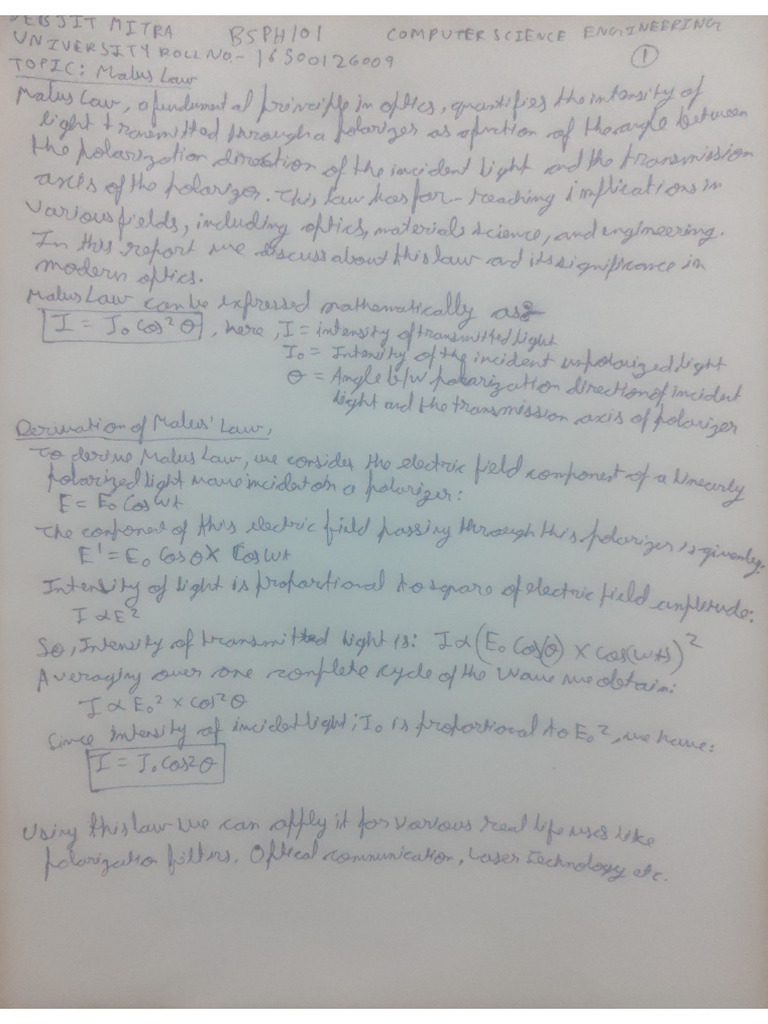 DEBJIT MITRA BSPH101 COMPUTER SCIENCE ENGINEERING
UNIVERSITY ROLL NO.- 16500126009 1
TOPIC: Malus Law
Malus Law, a fundamental principle in optics, quantifies the intensity of
light transmitted through a polarizer as a function of the angle between
the polarization direction of the incident light and the transmission
axes of the polarizer. This law has far-reaching implications in
various fields, including optics, materials science, and engineering.
In this report we discuss about this law and its significance in
modern optics.
Malus Law can be expressed mathematically as:-
I = I₀ Cos² θ, here, I = intensity of transmitted light
I₀ = Intensity of the incident unpolarized light
θ = Angle b/w polarization direction of incident
light and the transmission axis of polarizer
Derivation of Malus' Law,
To derive Malus Law, we consider the electric field component of a linearly
polarized light wave incident on a polarizer:
E = E₀ Cos wt
The component of this electric field passing through this polarizer is given by:
E' = E₀ Cos θ X Cos wt
Intensity of light is proportional to square of electric field amplitude:
I ∝ E²
So, Intensity of transmitted light is: I ∝ (E₀ Cos(θ) × cos(wt))²
Averaging over one complete cycle of the wave we obtain:
I ∝ E₀² × Cos² θ
Since intensity of incident light; I₀ is proportional to E₀², we have:
I = I₀ Cos² θ
Using this law we can apply it for various real life uses like
polarization filters, Optical communication, Laser Technology etc.